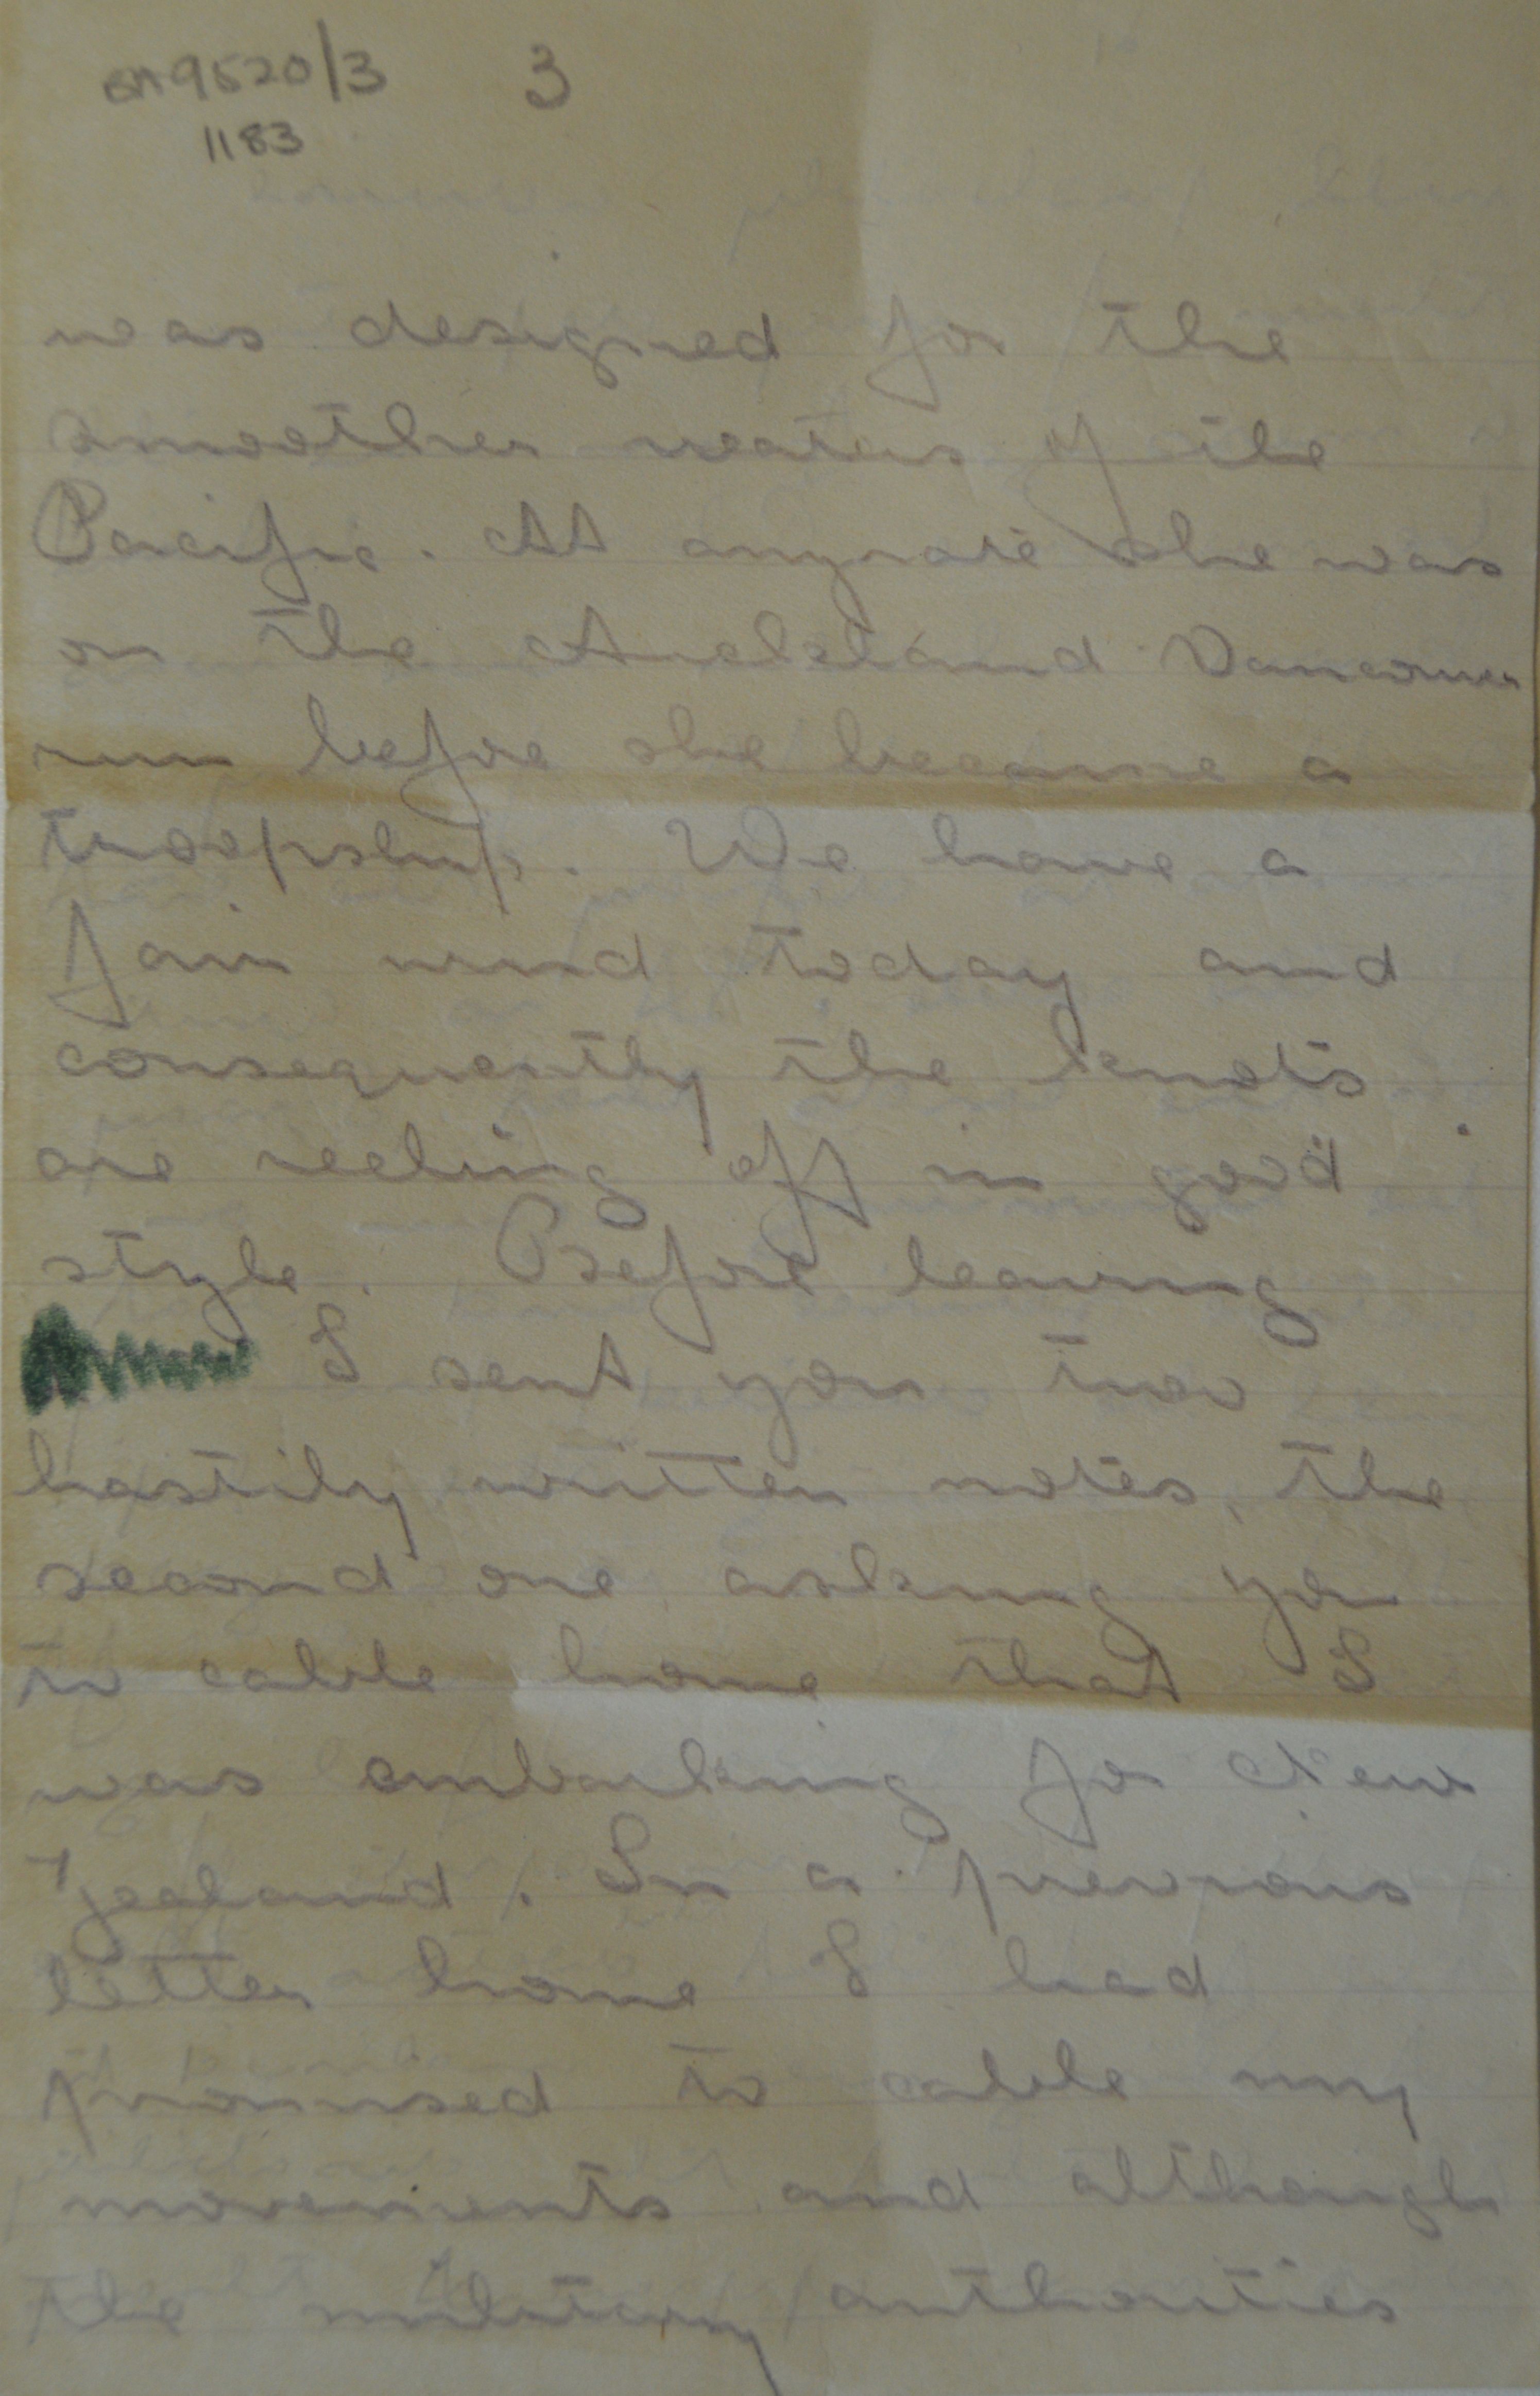 BM9520/3 3
1183
was designed for the
smoother waters of the
Pacific. At anyrate she was
on the Auckland Vancouver
run before she became a
troopship. We have a
fair wind today and
consequently the knots
are reeling off in good
style. Before leaving
I sent you two
hastily written notes, the
second one asking you
to cable home that I
was embarking for New
Zealand. In a previous
letter home I had
promised to cable my
movements and although
the military authorities